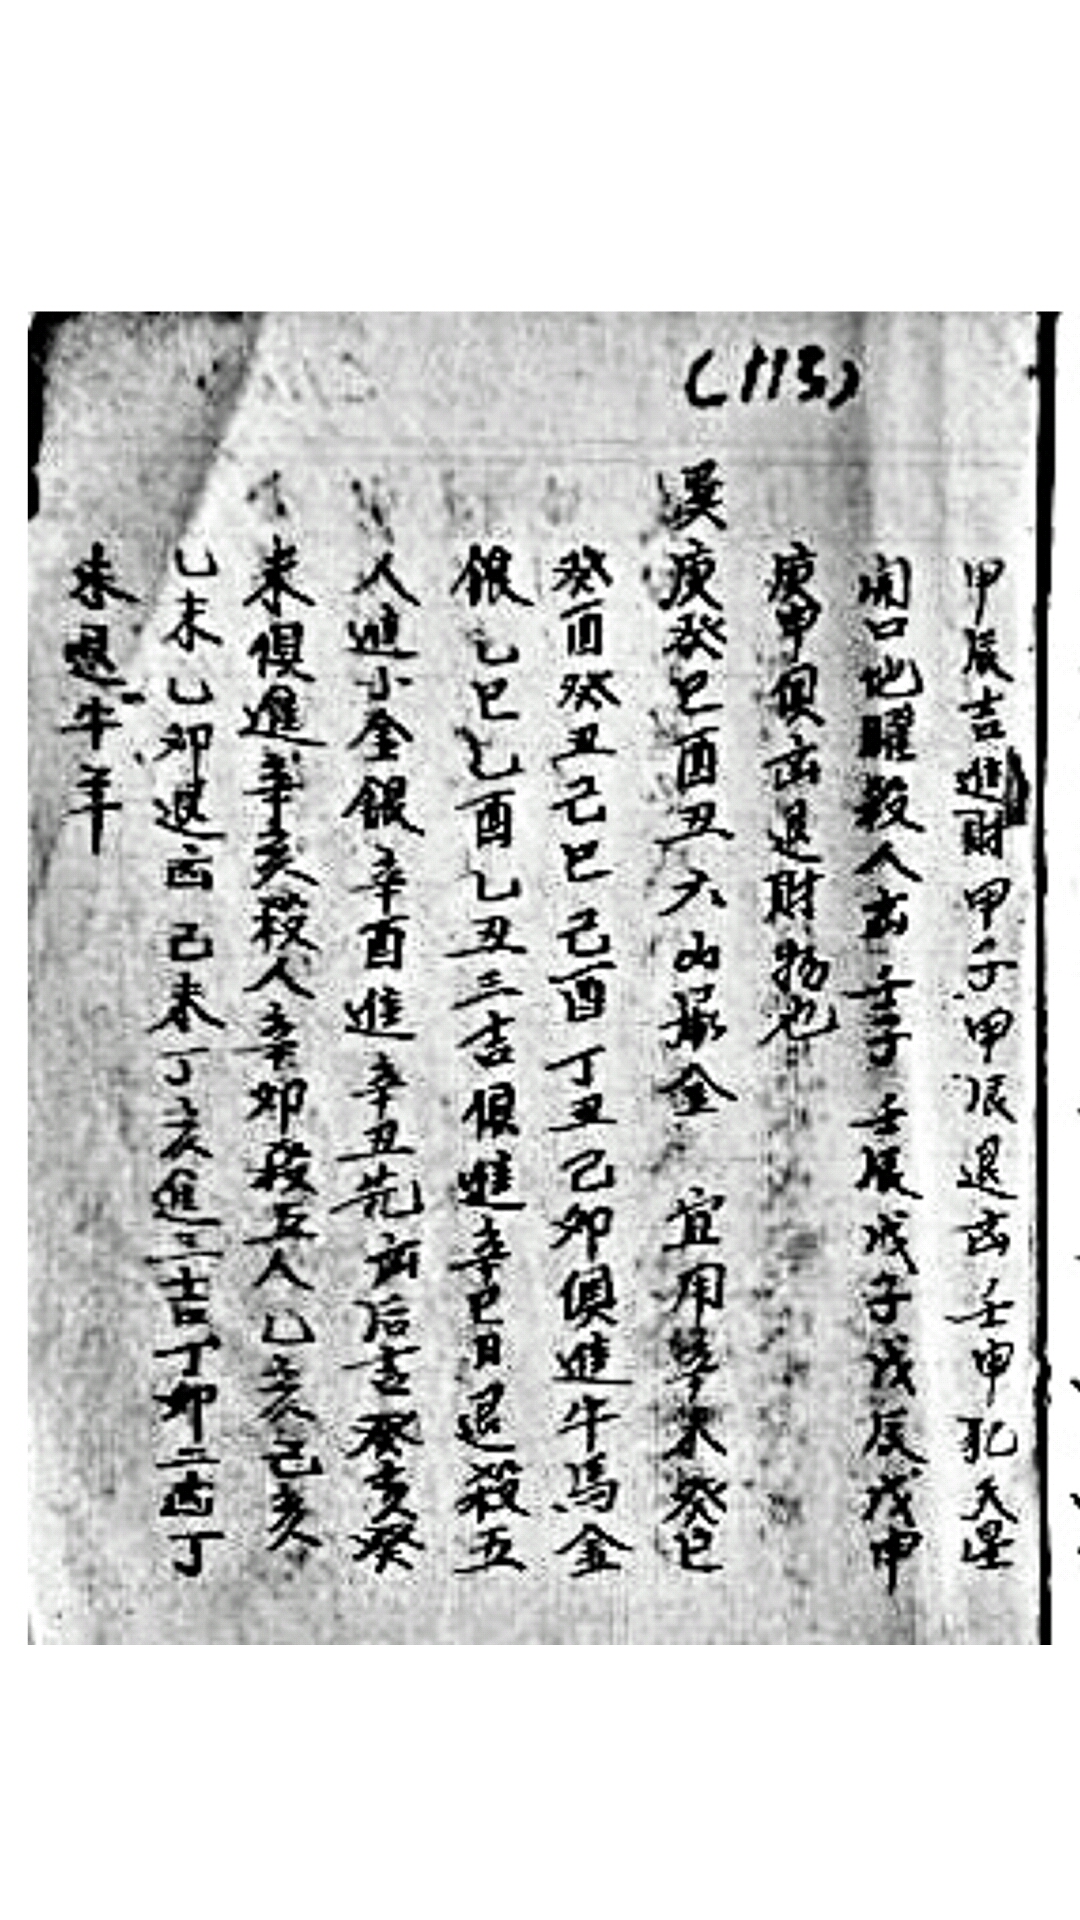 (113)
甲辰吉進財甲子甲辰退凶壬申犯天星
開口地曜殺人凶壬子壬辰戊子戊辰戊申
庚申俱凶退財物也
巽庚癸巳酉丑六山屬金 宜用辛未癸巳
癸酉癸丑己巳己酉丁丑己卯俱進牛馬金
銀乙巳乙酉乙丑三吉俱進辛巳日退殺五
人進小金銀辛酉進辛丑先凶后吉癸亥癸
未俱進辛亥殺人辛卯殺五人乙亥己亥
乙未乙卯退凶己未丁亥進二吉丁卯二凶丁
未退牛羊